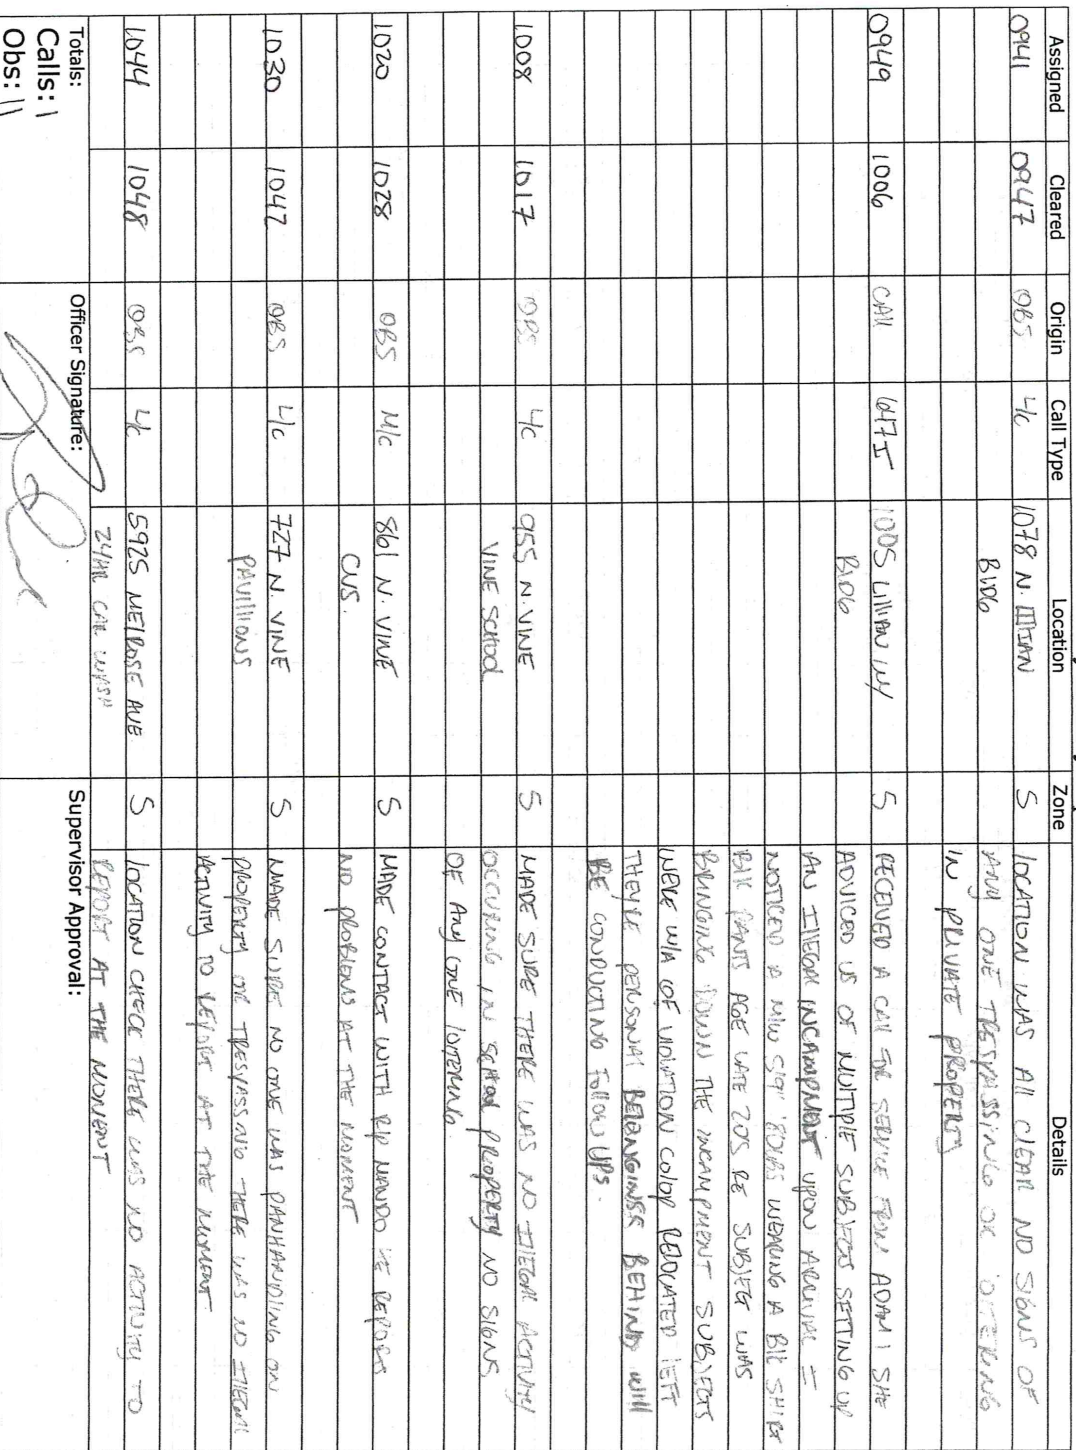 Assigned Cleared Origin Call Type Location Zone Details
0941 0947 OBS L/C 1078 N. LILLIAN S LOCATION WAS All CLEAR NO SIGNS OF
BlDG ANY ONE TRESPASSING OR LOITERING
IN PRIVATE PROPERTY
0949 1006 CAll 647I 1005 LilliAN WY S RECEIVED A CAll FOR SERVICE FROM ADAM 1 SHE
BlDG ADVICED US OF MULTIPLE SUBJECTS SETTING UP
AN IllEGAL INCAMPMENT UPON ARRIVAL I
NOTICED A M/W 5'9" 80LBS WEARING A BlK SHIRT
BlK PANTS AGE LATE 20S RE SUBJECT WAS
BRINGING DOWN THE INCAMPMENT SUBJECTS
WERE W/A OF VIOLATION COLOP RELOCATED LEFT
THEYRE PERSONAL BELONGINGS BEHIND Will
BE CONDUCTING Follow UPS.
1008 1017 OBS L/C 955 N. VINE S MADE SURE THERE WAS NO IllEGAL ACTIVITY
VINE SCHOOL OCCURING IN SCHOOL PROPERTY NO SIGNS
OF ANY ONE LOITERING.
1020 1028 OBS M/C 861 N. VINE S MADE CONTACT WITH R/P NANDO RE REPORTS
CVS. NO PROBLEMS AT THE MOMENT
1030 1042 OBS L/C 727 N. VINE S MADE SURE NO ONE WAS PANHANDLING ON
PAVILLIONS PROPERTY OR TRESPASSING THERE WAS NO IllEGAL
ACTIVITY TO REPORT AT THE MOMENT
1044 1048 OBS L/C 5925 MELROSE AVE S LOCATION CHECK THERE WAS NO ACTIVITY TO
24HR CAR WASH REPORT AT THE MOMENT
Totals: Officer Signature: Supervisor Approval:
Calls: 1
Obs: 11